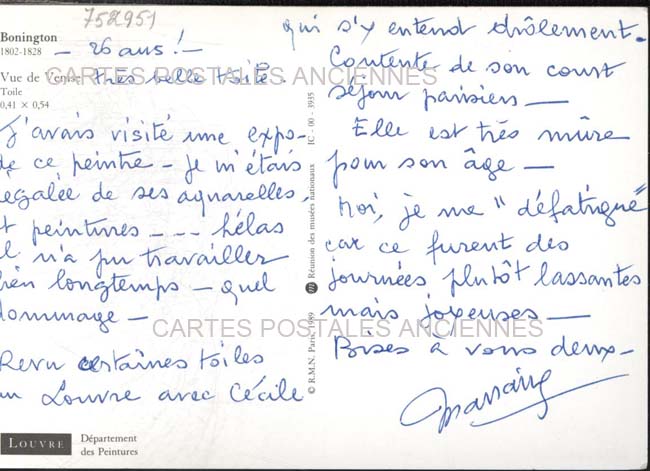 752951
Bonington
1802-1828
— 26 ans ! —
Vue de Venise
très belle toile.
Toile
0,41 × 0,54
CARTES POSTALES ANCIENNES
J'avais visité une expo-
de ce peintre - je m'étais
régalée de ses aquarelles,
et peintures - - - hélas
il n'a pu travailler
bien longtemps - quel
dommage -
Revu certaines toiles
au Louvre avec Cécile
LOUVRE
Département
des Peintures
© R.M.N. Paris, 1989 m Réunion des musées nationaux IC - 00 - 3935
qui s'y entend drôlement.
Contente de son court
séjour parisien —
Elle est très mûre
pour son âge —
Moi, je me "défatigue"
car ce furent des
journées plutôt lassantes
mais joyeuses —
CARTES POSTALES ANCIENNES
Bises à vous deux -